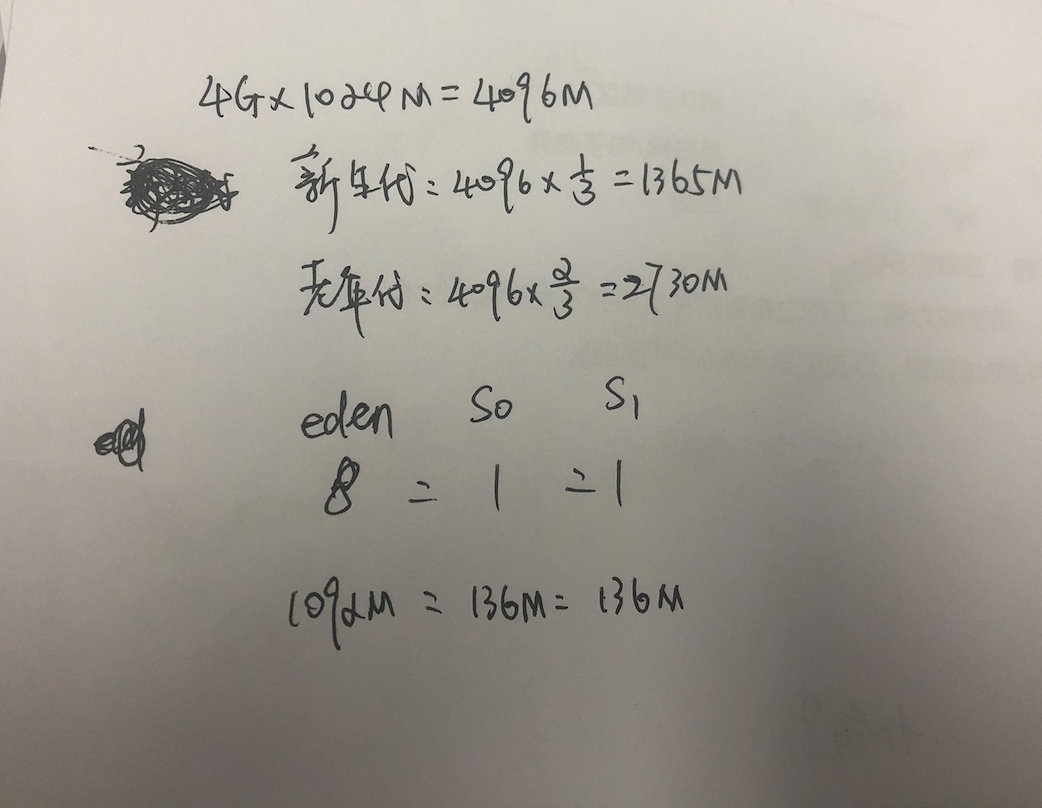 4G×1024M=4096M
新年代：4096×1/3=1365M
老年代：4096×2/3=2730M
eden S0 S1
8 = 1 = 1
1092M = 136M = 136M